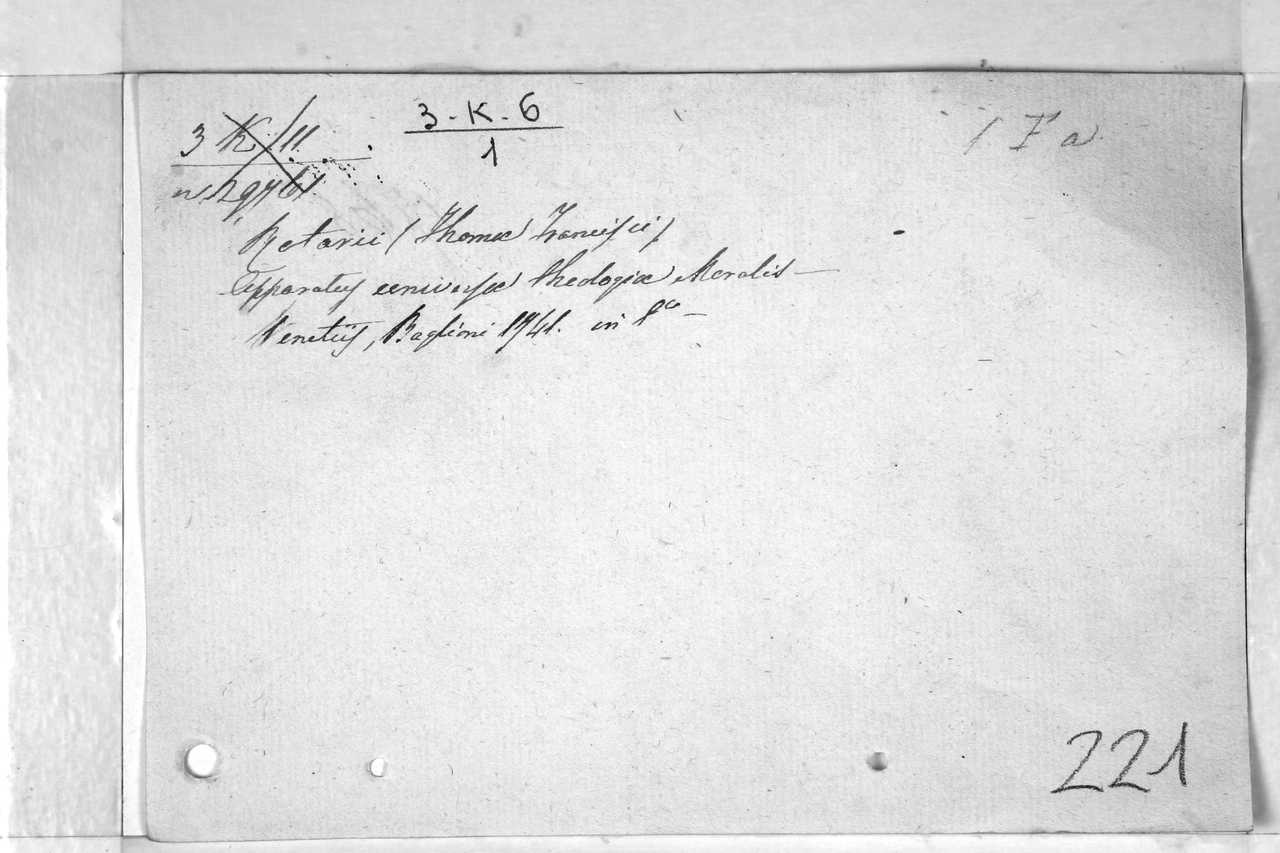 3 K. 11
3-K-6
1
1 F a
Rotarii (Thomæ Francisci)
Apparatus universæ theologiæ Moralis —
Venetiis, Baglioni 1741. in 8º —
221